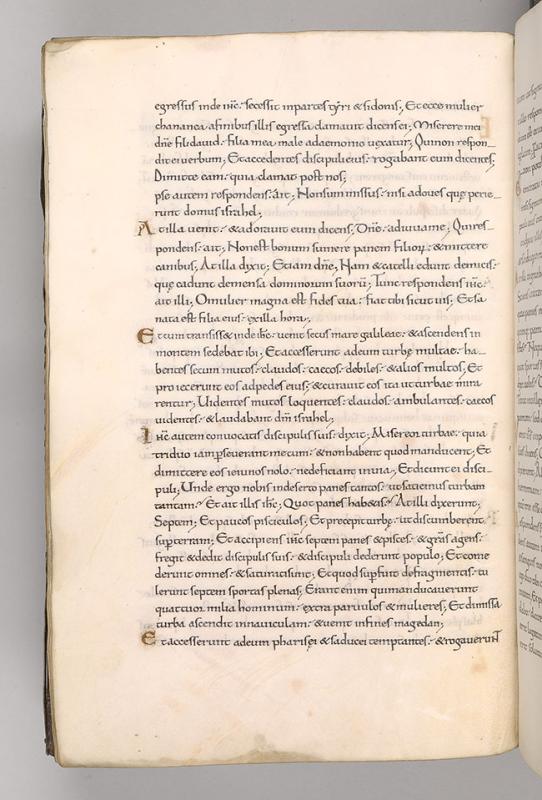 egressus inde ihc. secessit inpartes tyri & sidonis; Et ecce mulier
chananea afinibus illis egressa clamauit dicens ei; Miserere mei
dne fili dauid. filia mea male ademonio uexatur; Qui non respon-
dit ei uerbum; Et accedentes discipuli eius. rogabant eum dicentes;
Dimitte eam. quia clamat post nos;
pse autem respondens. ait; Non sum missus. nisi adoues quę perie-
runt domus israhel;
At illa uenit. & adorauit eum dicens; Dne. adiuua me; Qui res-
pondens. ait; Non est bonum sumere panem filiorꝝ. & mittere
canibus; At illa dixit; Etiam dne; Nam & catelli edunt demicis.
quę cadunt demensa dominorum suorū; Tunc respondens ihc.
ait illi; O mulier magna est fides tua. fiat tibi sicut uis; Et sa
nata est filia eius. exilla hora;
Et cum transiss& inde ihc. uenit secus mare galileae. & ascendens in
montem sedebat ibi; Et accesserunt adeum turbę multae. ha-
bentes secum mutos. claudos. caecos. debiles. & alios multos; Et
proiecerunt eos adpedes eius; & curauit eos ita ut turbae mira
rentur; Uidentes mutos loquentes. claudos. ambulantes. caecos
uidentes. & laudabant dm israhel;
Ihc autem conuocatis discipulis suis. dixit; Misereor turbae. quia
triduo iam perseuerant mecum. & non habent quod manducent; Et
dimittere eos ieiunos nolo. ne deficiant inuia; Et dicunt ei disci-
puli; Unde ergo nobis indeserto panes tantos. ut saturemus turbam
tantam. Et ait illis ihc; Quot panes hab&is. At illi dixerunt;
Septem; Et paucos pisciculos; Et precepit turbę. ut discumberent
super terram; Et accipiens ihc septem panes & pisces. & gras agens.
fregit & dedit discipulis suis. & discipuli dederunt populo; Et come
derunt omnes. & saturati sunt; Et quod superfuit defragmentis. tu
lerunt septem sportas plenas; Erant enim qui manducauerunt
quattuor milia hominum. extra paruulos & mulieres; Et dimissa
turba ascendit innauiculam. & uenit infines magedan;
Et accesserunt adeum pharisęi & saducei temptantes. & rogauerunt